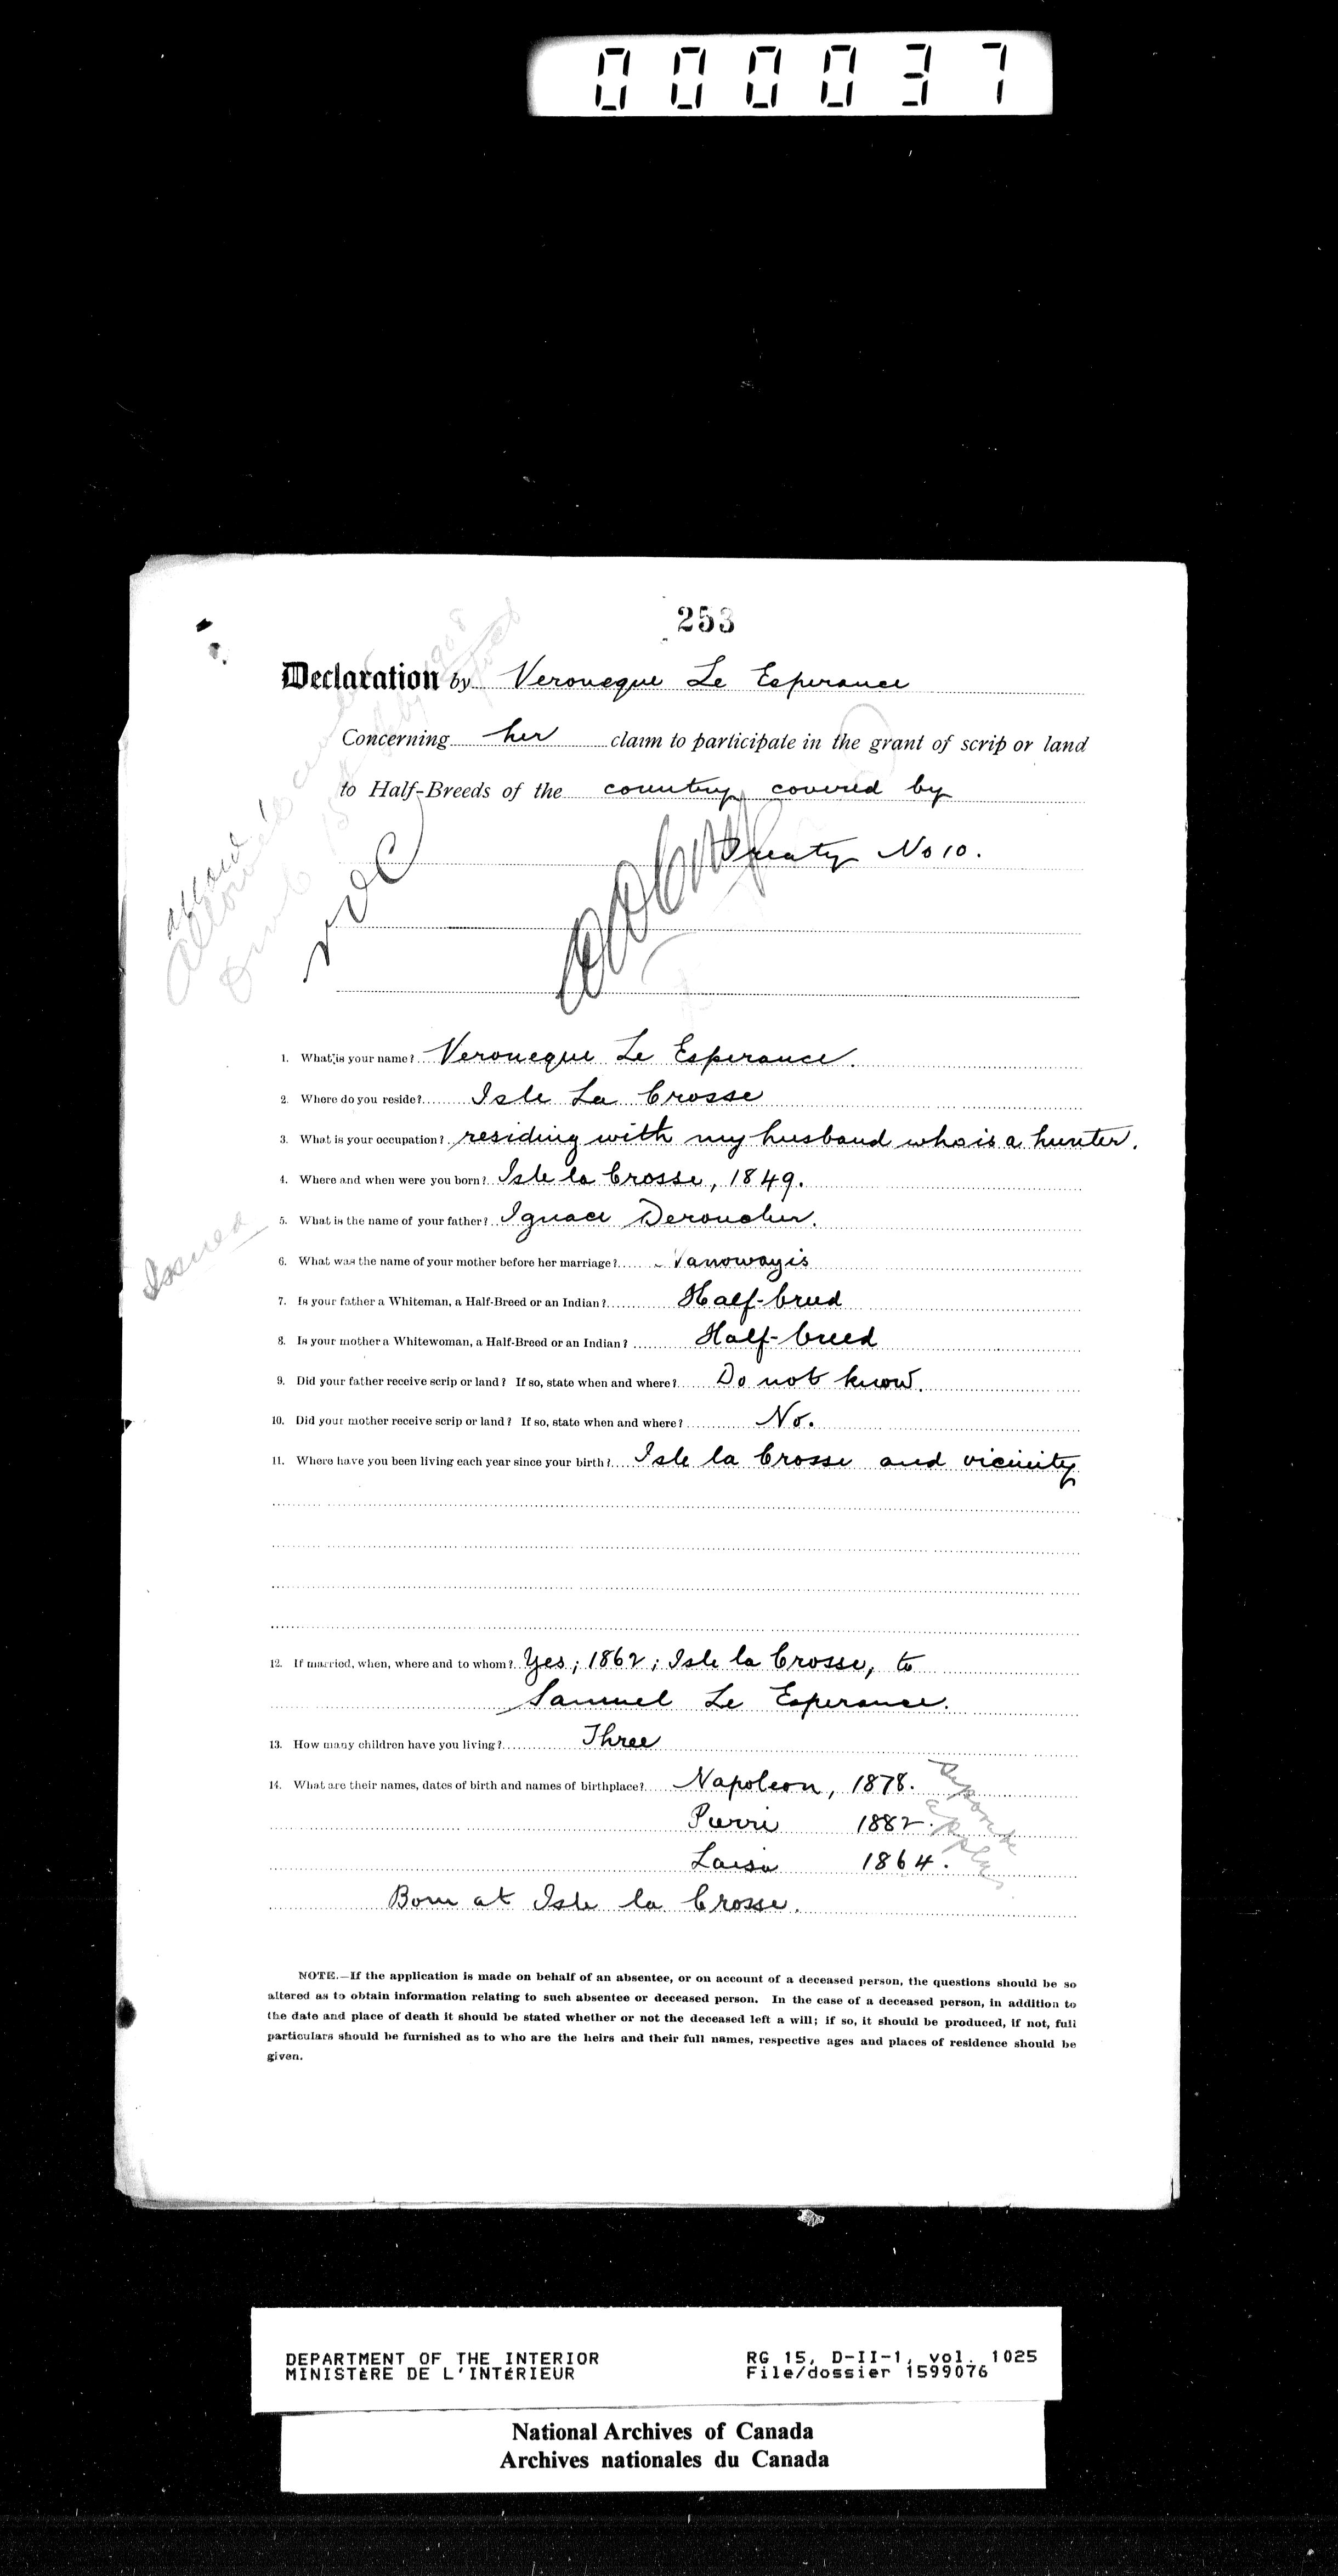 000037
253
Declaration by Veroneque Le Esperance
Concerning her claim to participate in the grant of scrip or land
to Half-Breeds of the country covered by
Treaty No 10.
Allowed
1. What is your name? Veroneque Le Esperance.
2. Where do you reside? Isle La Crosse
3. What is your occupation? residing with my husband who is a hunter.
4. Where and when were you born? Isle la Crosse, 1849.
5. What is the name of your father? Ignace Deroucher.
Issued
6. What was the name of your mother before her marriage? Vanowayis
7. Is your father a Whiteman, a Half-Breed or an Indian? Half-breed
8. Is your mother a Whitewoman, a Half-Breed or an Indian? Half-breed
9. Did your father receive scrip or land? If so, state when and where? Do not know.
10. Did your mother receive scrip or land? If so, state when and where? No.
11. Where have you been living each year since your birth? Isle la Crosse and vicinity
12. If married, when, where and to whom? Yes; 1862; Isle la Crosse, to
Samuel Le Esperance.
13. How many children have you living? Three
14. What are their names, dates of birth and names of birthplace? Napoleon, 1878.
Pierre 1882.
Louisa 1864.
Separate applns.
Born at Isle la Crosse.
NOTE.—If the application is made on behalf of an absentee, or on account of a deceased person, the questions should be so
altered as to obtain information relating to such absentee or deceased person. In the case of a deceased person, in addition to
the date and place of death it should be stated whether or not the deceased left a will; if so, it should be produced, if not, full
particulars should be furnished as to who are the heirs and their full names, respective ages and places of residence should be
given.
DEPARTMENT OF THE INTERIOR RG 15, D-II-1, vol. 1025
MINISTÈRE DE L'INTÉRIEUR File/dossier 1599076
National Archives of Canada
Archives nationales du Canada